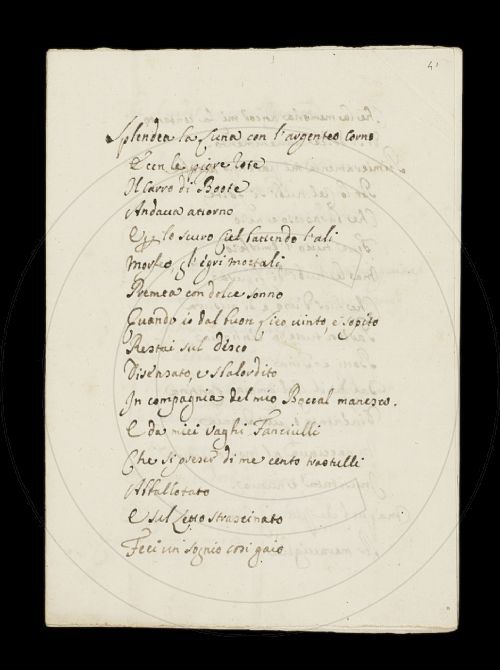 4
Splendea la Luna con l'argenteo Corno
E con le pigre rote
Il Carro di Boote
Andaua attorno
E p lo scuro Ciel battendo l'ali
Morfeo gl'egri mortali
Premea con dolce sonno
Quando io dal buon Lieo uinto, e sopito
Restai sul desco
Disensato, e sbalordito
In compagnia del mio Boccal manesco.
E da miei uaghi Fanciulli
Che si preser di me cento trastulli
Abballottato
E sul Letto strascinato
Feci un sognio cosi gaio